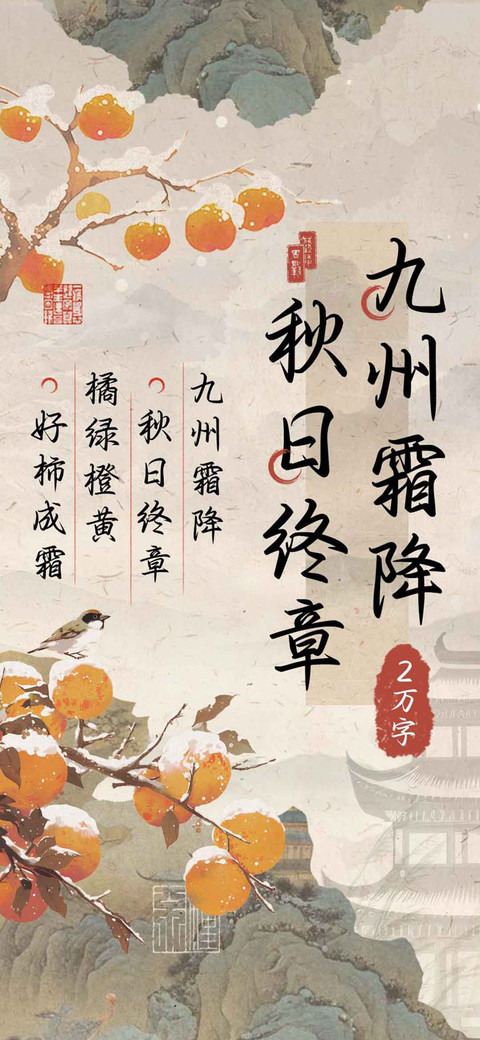 九州霜降
秋日终章
2万字
九州霜降
秋日终章
橘绿橙黄
好柿成霜